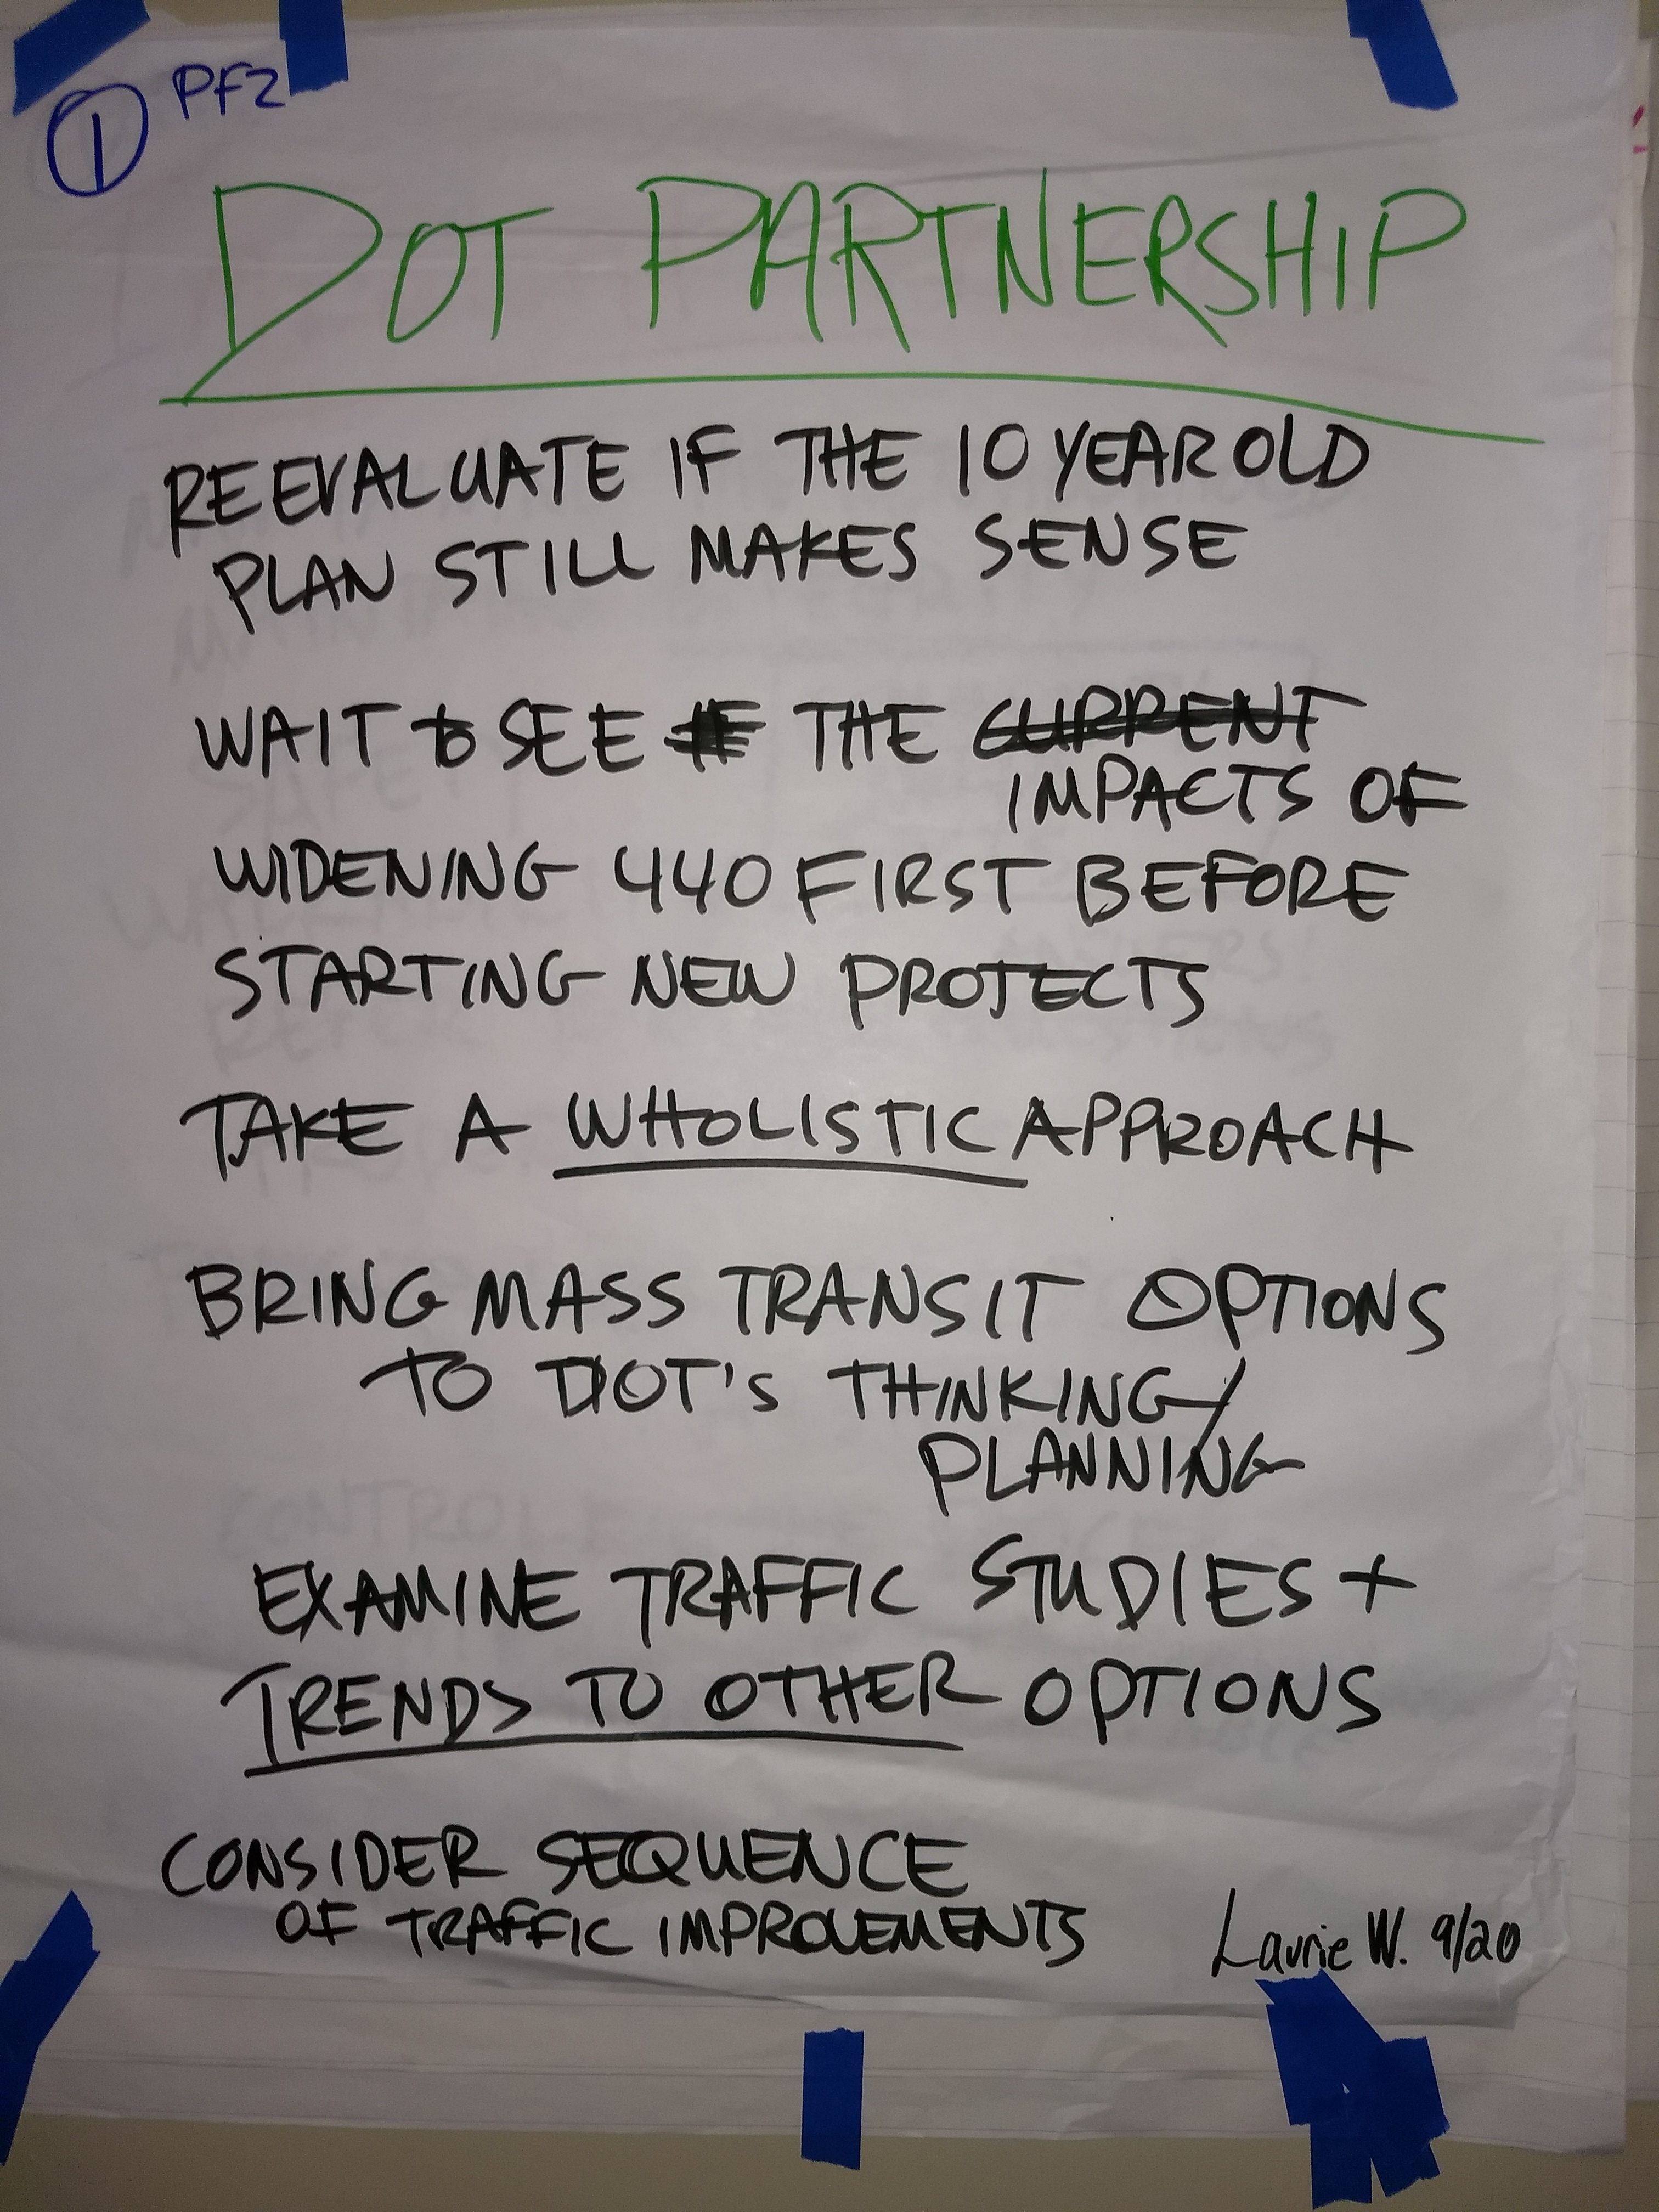 ① PF2
DOT PARTNERSHIP
REEVALUATE IF THE 10 YEAR OLD
PLAN STILL MAKES SENSE
WAIT to SEE THE CURRENT
IMPACTS OF
WIDENING 440 FIRST BEFORE
STARTING NEW PROJECTS
TAKE A WHOLISTIC APPROACH
BRING MASS TRANSIT OPTIONS
TO DOT'S THINKING/
PLANNING
EXAMINE TRAFFIC STUDIES +
TRENDS TO OTHER OPTIONS
CONSIDER SEQUENCE
OF TRAFFIC IMPROVEMENTS
Laurie W. 9/20